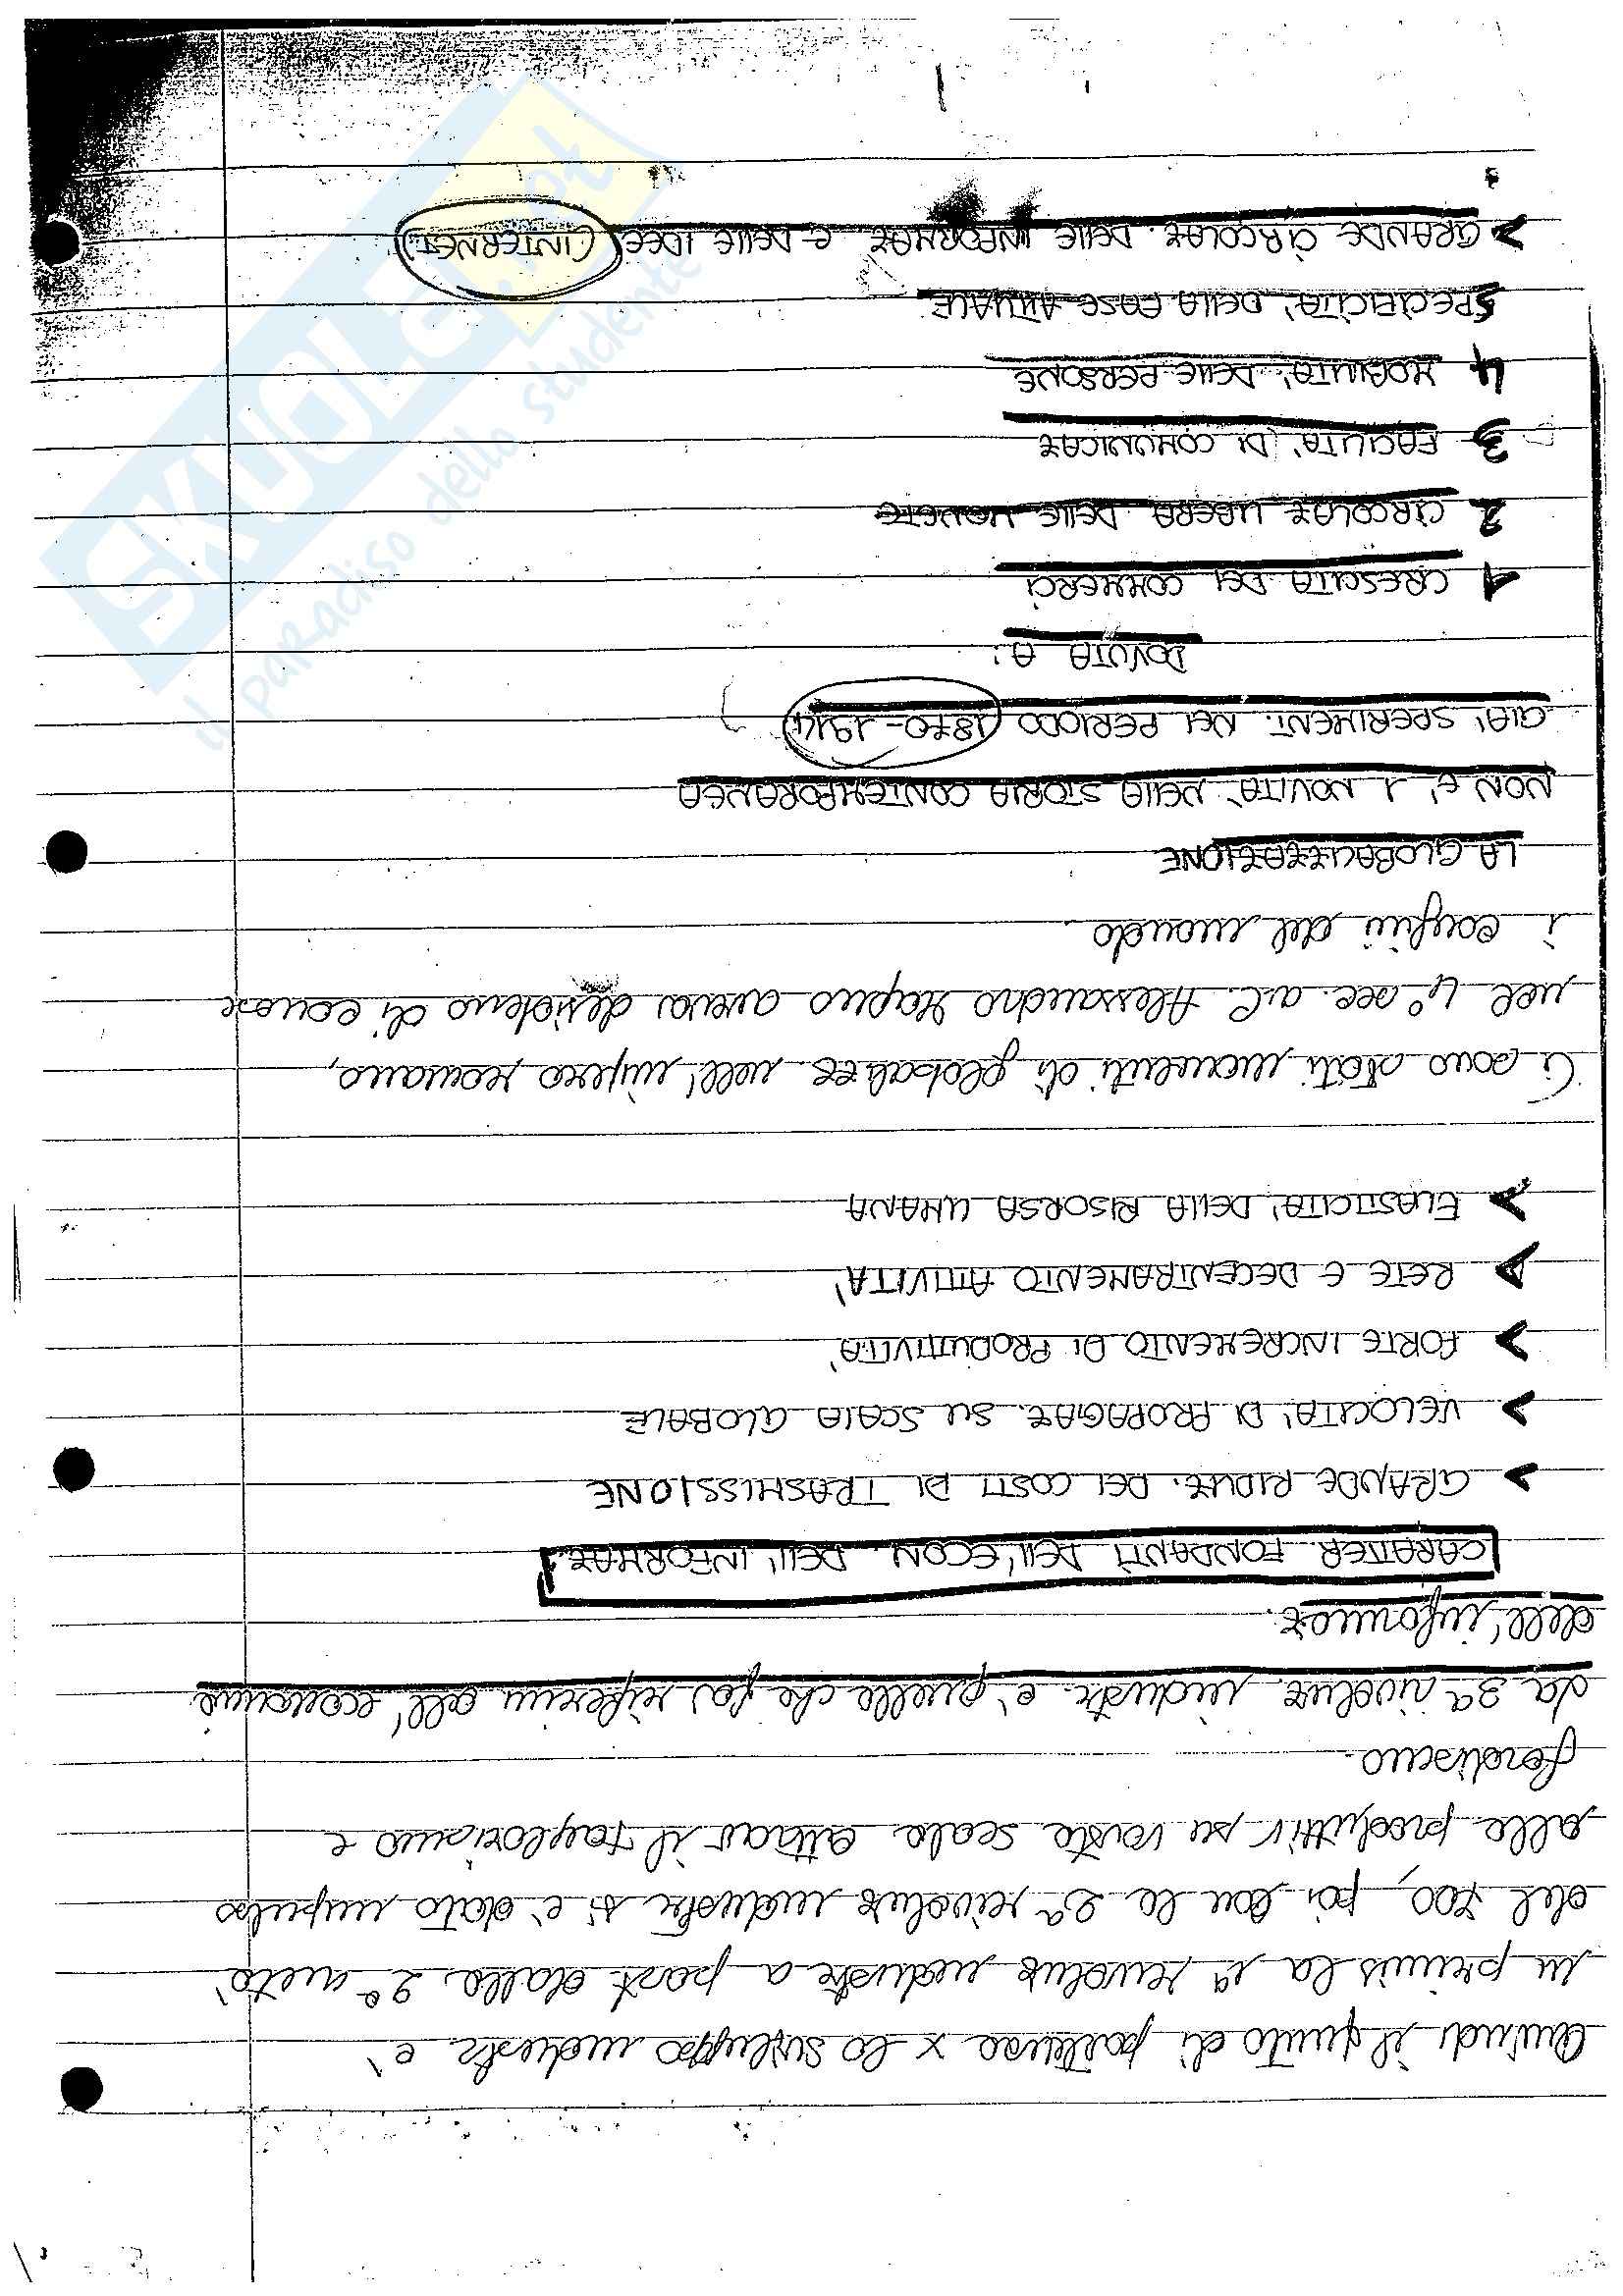 Quindi il punto di partenza x lo sviluppo industr è
in primis la 1ª rivoluz industr a part dalla 2ª metà
del 700, poi con la 2ª rivoluz industr si è dato impulso
alla produttiv su vasta scala attrav il Taylorismo e
fordismo.
La 3ª rivoluz industr. è quella che fa riferim all'economia
dell'informaz.
CARATTER FONDANTI DELL'ECON. DELL'INFORMAZ.
> GRANDE RIDUZ. DEI COSTI DI TRASMISSIONE
> VELOCITA' DI PROPAGAZ. SU SCALA GLOBALE
> FORTE INCREMENTO DI PRODUTTIVITA'
> RETE E DECENTRAMENTO ATTIVITA'
> ELASTICITA' DELLA RISORSA UMANA
Ci sono stati momenti di globalizz nell'impero romano,
nel 4° sec. a.C. Alessandro Magno aveva
i confini del mondo.
LA GLOBALIZZAZIONE
NON E' 1 NOVITA' NELLA STORIA CONTEMPORANEA
GIA' SPERIMENT. NEL PERIODO 1870-1914
DOVUTA A:
1 CRESCITA DEI COMMERCI
2 CIRCOLAZ LIBERA DELLE MONETE
3 FACILITA' DI COMUNICAZ
4 MOBILITA' DELLE PERSONE
SPECIFICITA' DELLA FASE ATTUALE
> GRANDE CIRCOLAZ. DELLE INFORMAZ E DELLE IDEE (INTERNET)
SKUOLA.not
il paradiso dello studente